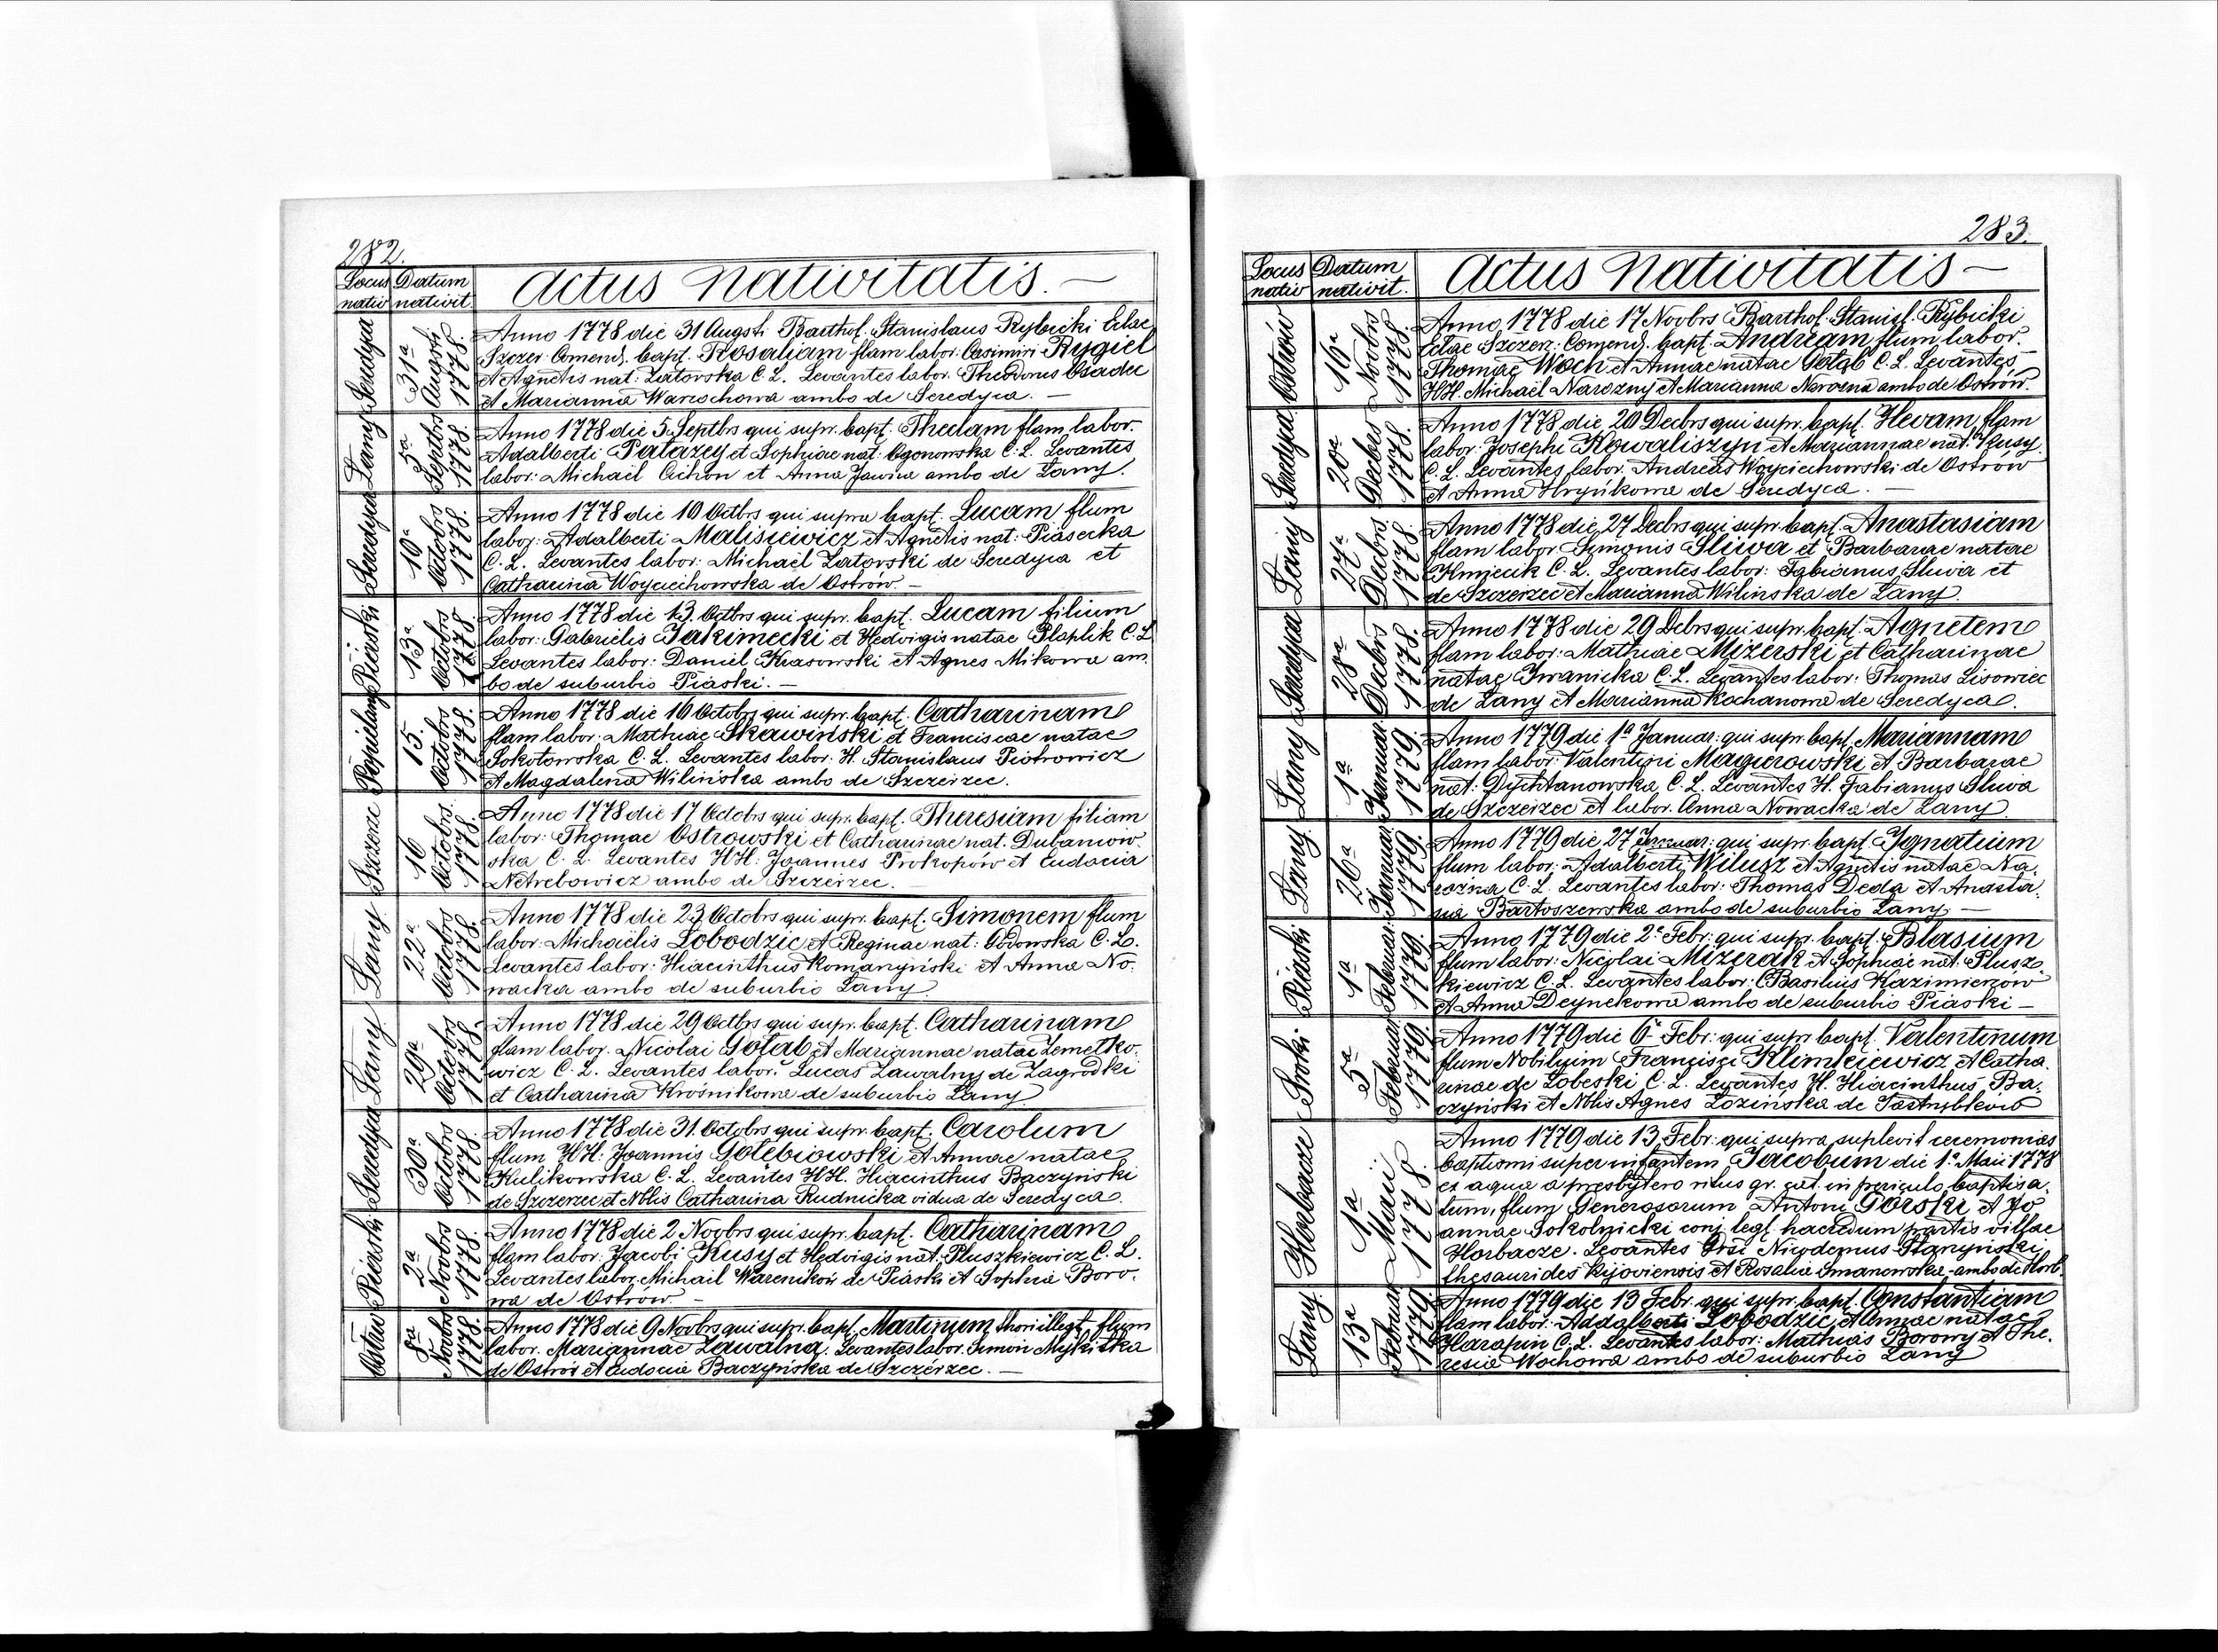 282.
Locus nativ
Datum nativit.
Actus Nativitatis. —
Seredyca
31ª Augsti 1778.
Anno 1778 die 31 Augsti Barthol. Stanislaus Rybicki Eclae
Szczer. Comend. bapt. Rosaliam flam labor. Casimiri Rygiel
et Agnetis nat: Zatorska C. L. Levantes labor. Theodorus Osadca
et Marianna Warochowa ambo de Seredyca. —
Łany
5ª Septbrs 1778.
Anno 1778 die 5. Septbrs qui supr. bapt. Theclam flam labor.
Adalberti Patażey et Sophiae nat: Ogonowska C. L. Levantes
labor: Michail Cichon et Anna Jawina ambo de Łany.
Seredyca
10ª Octobrs 1778.
Anno 1778 die 10 Octbrs qui supra bapt. Lucam flum
labor: Adalberti Malisiewicz et Agnetis nat: Piasecka
C. L. Levantes labor: Michaël Zatorski de Seredyca et
Catharina Woyciechowska de Ostrów. —
Piaski
13ª Octobrs 1778.
Anno 1778 die 13. Octbrs qui supr. bapt. Lucam filium
labor: Gabrielis Jakimecki et Hedvigis natae Płaplik C. L
Levantes labor: Daniel Krasowski et Agnes Mikowa am
bo de suburbio Piaski. —
Popielany
15. Octobrs 1778.
Anno 1778 die 16 Octobrs qui supr. bapt. Catharinam
flam labor. Mathiae Skawiński et Franciscae natae
Sokołowska C. L. Levantes labor: H. Stanislaus Piotrowicz
et Magdalena Wilińska ambo de Szczerzec.
Szczerc
16 Octobrs. 1778.
Anno 1778 die 17 Octobrs qui supr. bapt. Theresiam filiam
labor: Thomae Ostrowski et Catharinae nat. Dubaniow-
ska C. L. Levantes HH: Joannes Prokopów et Eudocia
Netrebowicz ambo de Szczeirzec.
Łany
22ª Octobrs 1778.
Anno 1778 die 23 Octobrs qui supr. bapt. Simonem flum
labor: Michaëlis Łobodzic et Reginae nat: Godowska C. L.
Levantes labor: Hiacinthus Romanyński et Anna No-
wacka ambo de suburbio Łany.
Łany
29ª Octobrs 1778.
Anno 1778 die 29 Octbrs qui supr. bapt. Catharinam
flam labor. Nicolai Gołab et Mariannae natae Zemełko-
wicz C. L. Levantes labor: Lucas Zawalny de Zagrodki
et Catharina Krośnikowa de suburbio Łany
Seredyca
30ª Octobrs 1778.
Anno 1778 die 31. Octobrs qui supr. bapt. Carolum
flum HH: Joannis Gołebiowski et Annae natae
Kulikowska C. L. Levantes HH. Hiacinthus Baczyński
de Szczerzec et Nblis Catharina Rudnicka vidua de Seredyca.
Piaski
2ª Novbrs 1778.
Anno 1778 die 2 Novbrs qui supr. bapt. Catharinam
flam labor. Jacobi Kusy et Hedvigis nat. Pluszkiewicz C. L.
Levantes labor. Michail Wareników de Piaski et Sophia Boro-
wa de Ostrów —
Ostrów
8ª Novbrs 1778.
Anno 1778 die 9 Novbrs qui supr. bapt. Martinum, thori illegt. flum
labor. Mariannae Zawalna. Levantes labor. Simon Mykitka
de Ostrów et Eudocia Baczyńska de Szczérzec. —
283.
Locus nativ
Datum nativit.
Actus Nativitatis —
Ostrów
16ª Novbrs 1778.
Anno 1778 die 17 Novbrs Barthol. Stanisl. Rybicki
Eclae Szczerz: Comend. bapt. Andream flum labor.
Thomae Woch et Annae natae Gołąb C. L. Levantes
HH. Michaël Narozny et Marianna Narozna ambo de Ostrów.
Seredyca
20ª Decbrs 1778.
Anno 1778 die 20 Decbrs qui supr. bapt. Hevam flam
labor: Josephi Kowaliszyn et Mariannae nat: Kusy
C. L. Levantes labor. Andreas Woyciechowski de Ostrów
et Anna Hryńkowa de Seredyca. —
Łany
27ª Decbrs 1778.
Anno 1778 die 27 Decbrs qui supr. bapt. Anastasiam
flam labor Simonis Śliwa et Barbarae natae
Kmiecik C. L. Levantes labor: Fabianus Sliwa et
de Szczerzec et Marianna Wilinska de Łany.
Seredyca
28ª Decbrs 1778.
Anno 1778 die 29 Debrs qui supr. bapt. Agnetem
flam labor: Mathiae Mizerski et Catharinae
natae Iwanicka C. L. Levantes labor: Thomas Lisowiec
de Łany et Marianna Kochanowa de Seredyca.
Łany
1ª Januar 1779.
Anno 1779 die 1ª Januar: qui supr. bapt. Mariannam
flam labor: Valentini Magurowski et Barbarae
nat: Dychtanowska C. L. Levantes H. Fabianus Sliwa
de Szczeirzec et labor. Anna Nowacka de Łany
Łany
26ª Januar 1779.
Anno 1779 die 27 Januar: qui supr. bapt. Ignatium
flum labor: Adalberti Wilusz et Agnetis natae Na-
rozna C. L. Levantes labor: Thomas Deda et Anasta-
sia Bartoszewska ambo de suburbio Łany —
Piaski
1ª Februar 1779.
Anno 1779 die 2ª Febr: qui supr. bapt. Blasium
flum labor: Nicolai Mizerak et Sophiae nat: Plusz-
kiewicz C. L. Levantes labor: Basilius Kazimierzow
et Anna Deynekowa ambo de suburbio Piaski —
Sroki
5ª Februar 1779.
Anno 1779 die 6ª Febr: qui supr. bapt. Valentinum
flum Nobilium Francisci Klimkiewicz et Catha-
rinae de Łobeski C. L. Levantes H. Hiacinthus Ba-
czyński et Nblis Agnes Łozińska de Jastrzbków
Horbacze
1ª Maii 1778.
Anno 1779 die 13 Febr: qui supra suplevit ceremonias
baptismi super infantem Jacobum die 1ª Maii 1778
ex aqua a presbytero ritus gr. cat. in periculo baptisa-
tum, flum Generosorum Antoni Górski et Jo-
annae Sokolnicki conj. legt. haeredum partis villae
Horbacze. Levantes Gosi Nicodemus Starzyński
thesaurides Kijoviensis et Rosalia Smanowska, ambo de Horb.
Łany
13ª Februar 1779
Anno 1779 die 13 Febr. qui supr. bapt. Constantiam
flam labor. Addalberti Łobodzic et Annae natae
Harapin C. L. Levantes labor: Mathias Borowy et The-
resia Wochowa ambo de suburbio Łany